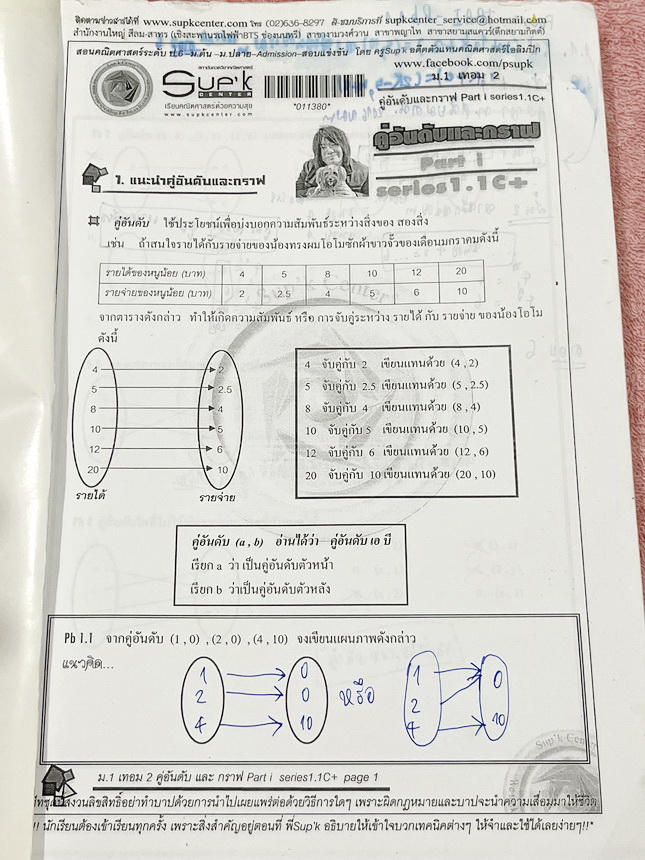 ติดตามข่าวสารได้ที่ www.supkcenter.com โทร (02)636-8297 อี-ชมบริการที่ supkcenter_service@hotmail.com
สำนักงานใหญ่ สีลม-สาทร (เชิงสะพานรถไฟฟ้าBTS ช่องนนทรี) สาขางามวงศ์วาน สาขาพญาไท สาขาสยามสแควร์(ตึกสยามกิตต์)
สอนคณิตศาสตร์ระดับ ป.6-ม.ต้น-ม.ปลาย-Admission-สอบแข่งขัน โดย ครูSup'k อดีตตัวแทนคณิตศาสตร์โอลิมปิก
www.facebook.com/psupk
ม.1 เทอม 2
Sup'k
CENTER
เรียนคณิตศาสตร์ด้วยความสุข
www.supkcenter.com
*011380*
คู่อันดับและกราฟ Part i series1.1C+
คู่อันดับและกราฟ
Part I
series1.1C+
1. แนะนำคู่อันดับและกราฟ
คู่อันดับ ใช้ประโยชน์เพื่อบ่งบอกความสัมพันธ์ระหว่างสิ่งของ สองสิ่ง
เช่น ถ้าสนใจรายได้กับรายจ่ายของน้องทรงผมโอโมซักผ้าขาวจั๊วของเดือนมกราคมดังนี้
รายได้ของหนูน้อย (บาท) 4 5 8 10 12 20
รายจ่ายของหนูน้อย (บาท) 2 2.5 4 5 6 10
จากตารางดังกล่าว ทำให้เกิดความสัมพันธ์ หรือ การจับคู่ระหว่าง รายได้ กับ รายจ่าย ของน้องโอโม
ดังนี้
4 2
5 2.5
8 4
10 5
12 6
20 10
รายได้ รายจ่าย
4 จับคู่กับ 2 เขียนแทนด้วย (4 , 2)
5 จับคู่กับ 2.5 เขียนแทนด้วย (5 , 2.5)
8 จับคู่กับ 4 เขียนแทนด้วย (8 , 4)
10 จับคู่กับ 5 เขียนแทนด้วย (10 , 5)
12 จับคู่กับ 6 เขียนแทนด้วย (12 , 6)
20 จับคู่กับ 10 เขียนแทนด้วย (20 , 10)
คู่อันดับ (a , b) อ่านได้ว่า คู่อันดับ เอ บี
เรียก a ว่า เป็นคู่อันดับตัวหน้า
เรียก b ว่าเป็นคู่อันดับตัวหลัง
Pb 1.1 จากคู่อันดับ (1 , 0) , (2 , 0) , (4 , 10) จงเขียนแผนภาพดังกล่าว
แนวคิด...
1 0
2 0 หรือ
4 10
1 0
2
4 10
ม.1 เทอม 2 คู่อันดับ และ กราฟ Part i series1.1C+ page 1
สงวนลิขสิทธิ์อย่าทำบาปด้วยการนำไปเผยแพร่ต่อด้วยวิธีการใดๆ เพราะผิดกฎหมายและบาปจะนำความเสื่อมมาให้ชีวิต
!! นักเรียนต้องเข้าเรียนทุกครั้ง เพราะสิ่งสำคัญอยู่ตอนที่ พี่Sup'k อธิบายให้เข้าใจบวกเทคนิคต่างๆ ให้จำและใช้ได้เลยง่ายๆ!!*